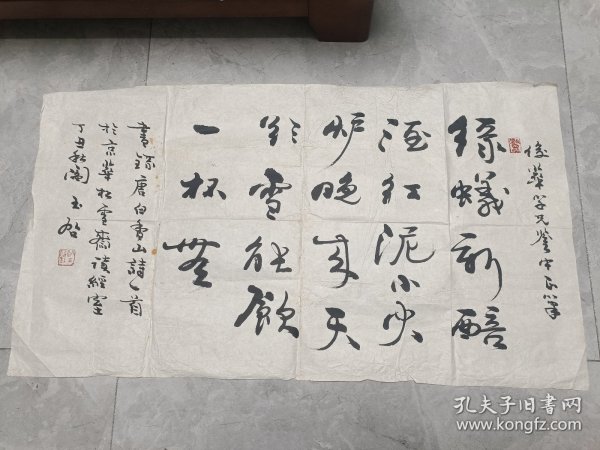 俊華学兄鉴字正筆
绿蟻新醅
酒红泥小火
炉晚来天
欲雪能飲
一杯無
書録唐白香山詩一首
於京華松雪齋読經室
丁丑秋闫玉启
孔夫子旧书网
www.kongfz.com